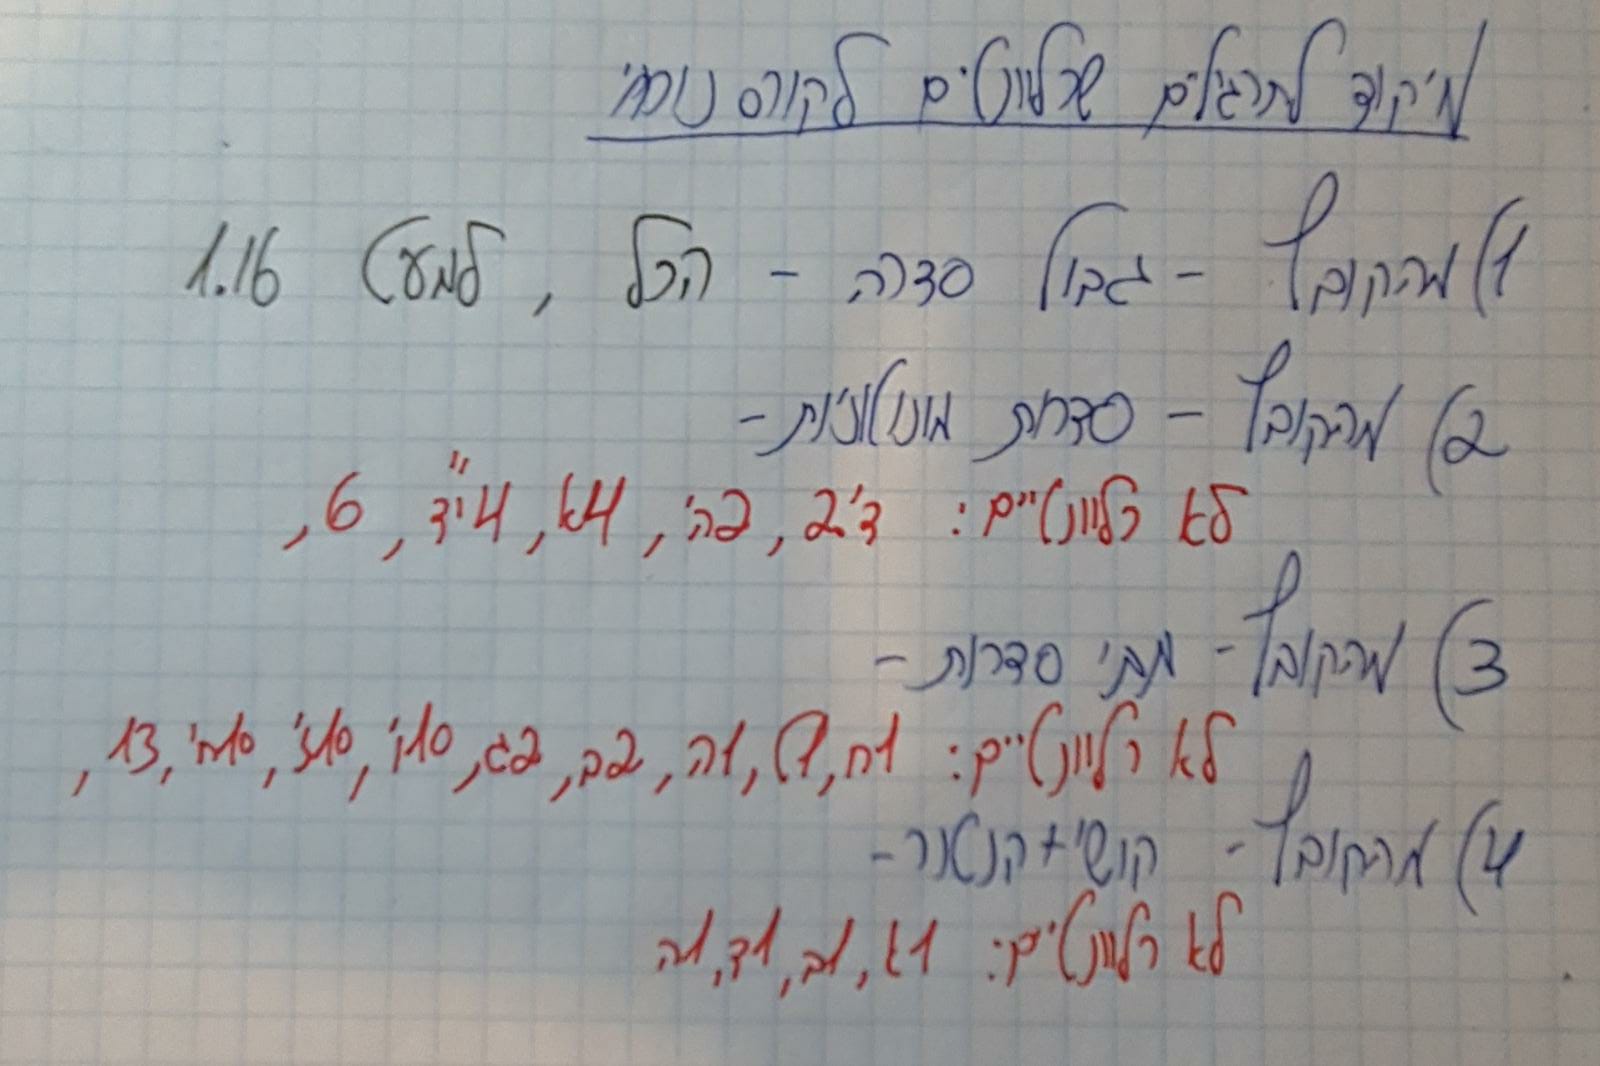 מיקוד לתרגילים שרלוונטים לקורס נוכחי
1) מהקובץ - גבול סדרה - הכל , למעט 1.16
2) מהקובץ - סדרות מונוטוניות -
לא רלוונטיים: 2ד', 2ה', 4א, 4יד", 6,
3) מהקובץ - מבחני סדרות -
לא רלוונטיים: 1ח, 1ה, 2ב, 2ג, 13,
4) מהקובץ - קושי+קנטור -
לא רלוונטים: 1א, 1ב, 1ד, 1ה